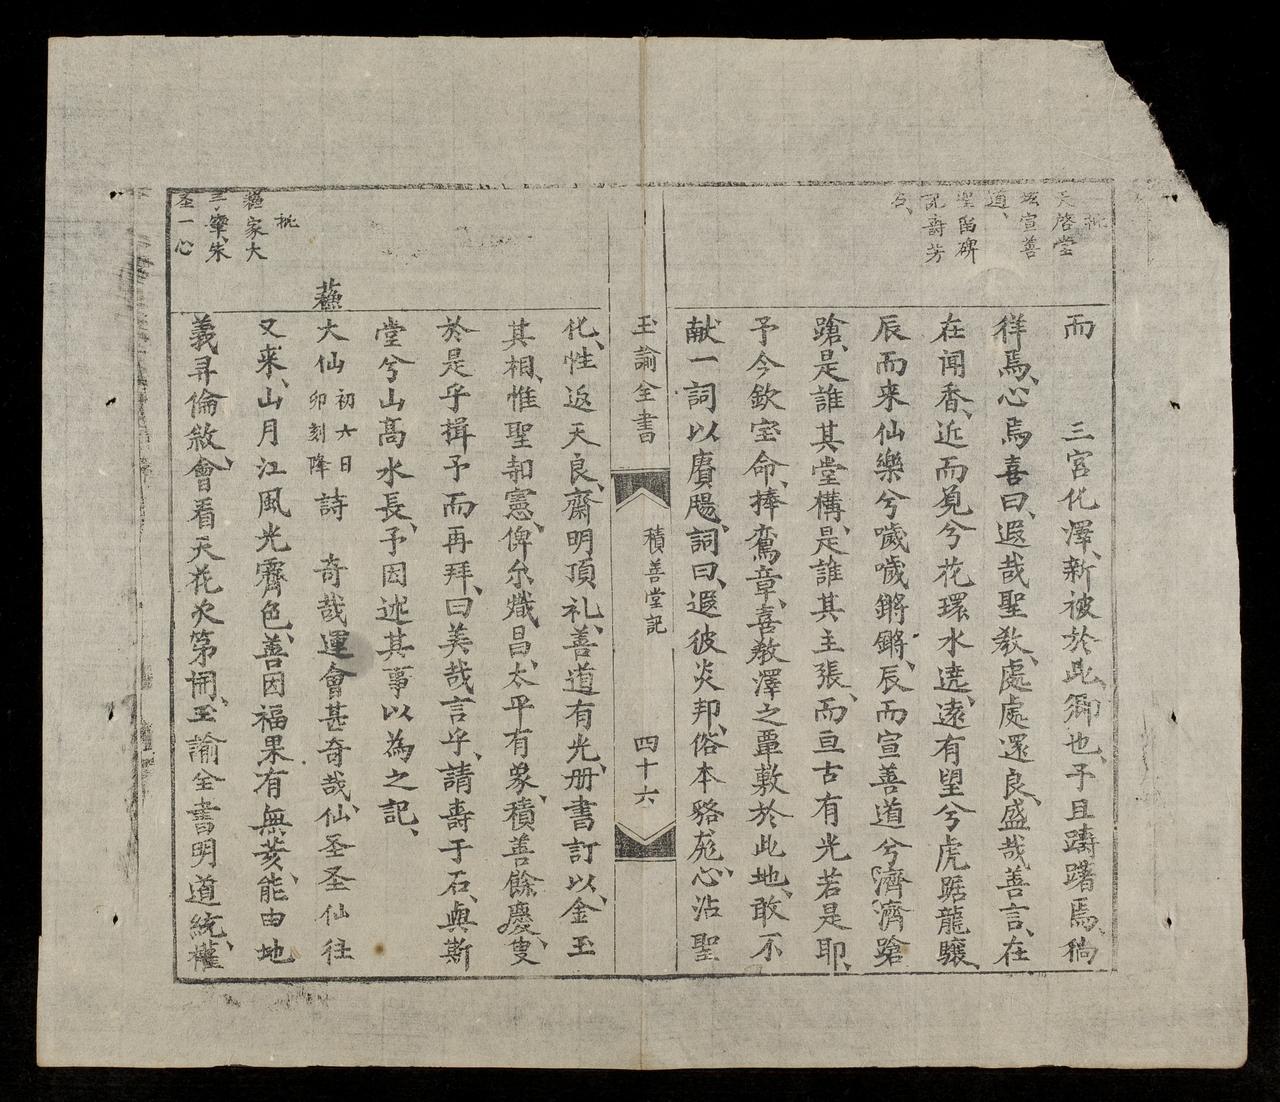 批
天啓堂
壇宣善
道、
聖留碑
記壽芳
名、
而　三宮化澤、新被於此鄉也、予且躊躇焉、徜
徉焉、心焉喜曰、遐哉聖敎、處處還良、盛哉善言、在
在闻香、近而覓兮花環水遶、遠有望兮虎踞龍驤、
辰而来仙樂兮噦噦鏘鏘、辰而宣善道兮濟濟蹌
蹌、是誰其堂構、是誰其主張、而亘古有光若是耶、
予今欽宝命、捧鸞章、喜敎澤之覃敷於此地、敢不
献一詞以賡颺、詞曰、遐彼炎邦、俗本貉厖、心沾聖
玉諭全書
積善堂記
四十六
化、性返天良、齋明頂礼、善道有光、册書訂以金玉
其相、惟聖韌憲、俾尔熾昌、太平有象、積善餘慶、隻
於是乎揖予而再拜、曰美哉言乎、請壽于石、與斯
堂兮山高水長、予因述其事以為之記、
批
蘓家大
三宰、朱
圣一心
蘓
大仙初六日卯刻降詩　奇哉運會甚奇哉、仙圣圣仙往
又来、山月江風光霽色、善因福果有無荄、能由地
義寻倫敘、會看天花次第開、玉諭全書明道統、權